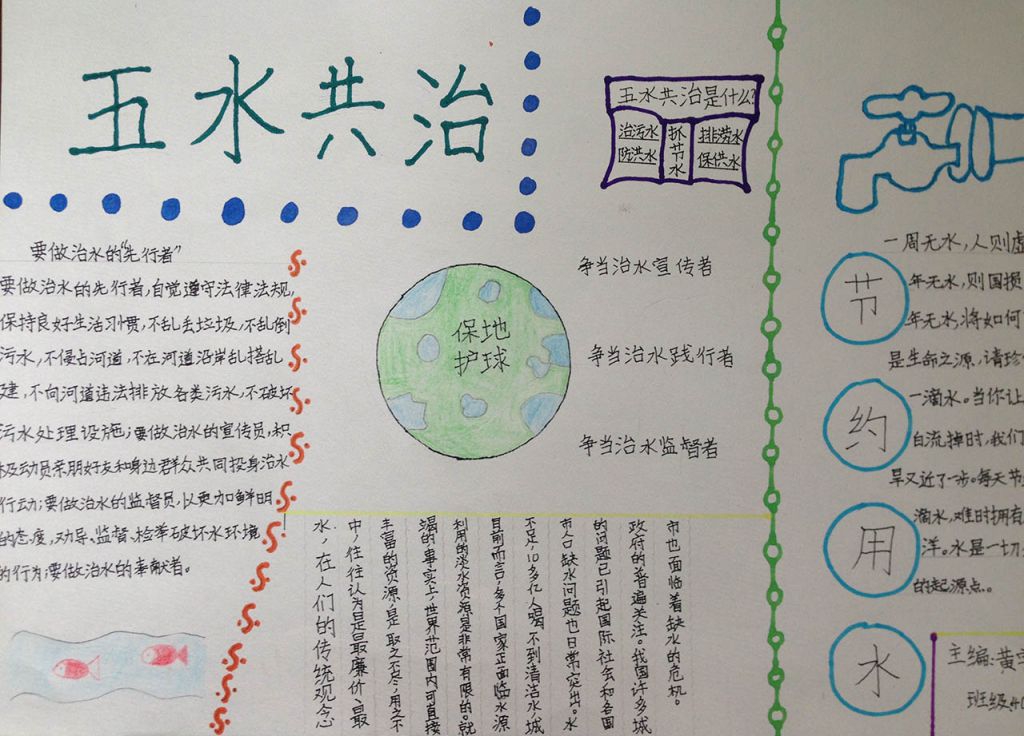 五水共治
五水共治是什么?
治污水
防洪水
抓节水
排涝水
保供水
要做治水的“先行者”
要做治水的先行者,自觉遵守法律法规,
保持良好生活习惯,不乱丢垃圾,不乱倒
污水,不侵占河道,不在河道沿岸乱搭乱
建,不向河道违法排放各类污水,不破坏
污水处理设施;要做治水的宣传员,积
极动员亲朋好友和身边群众共同投身治水
行动;要做治水的监督员,以更加鲜明
的态度,劝导、监督、检举破坏水环境
的行为;要做治水的奉献者。
保地
护球
争当治水宣传者
争当治水践行者
争当治水监督者
水,在人们的传统观念
中,往往认为是最廉价、最
丰富的资源,是取之不尽,用之不
竭的事实上,世界范围内可直接
利用的淡水资源是非常有限的。就
目前而言,多个国家正面临水源
不足,10多亿人喝不到清洁水,城
市人口缺水问题也日常突出。水
的问题已引起国际社会和各国
政府的普遍关注。我国许多城
市也面临着缺水的危机。
节
约
用
水
一周无水,人则虚
年无水,则国损
年无水,将如何
是生命之源,请珍
一滴水。当你让
白流掉时,我们
旱又近了一步。每天节
滴水,难时拥有
洋。水是一切
的起源点。
主编:黄
班级: